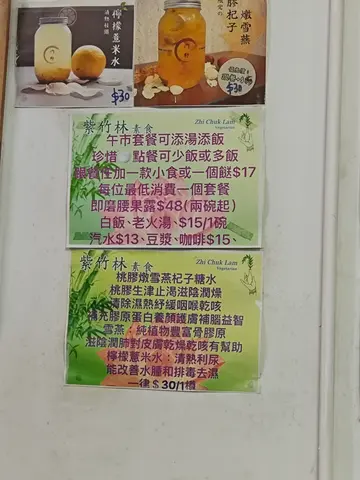 檸檬薏米水
$30
膠杞子
燉雪燕
$30
紫竹林 素食
Zhi Chuk Lam
Vegetarian
午市套餐可添湯添飯
點餐可少飯或多飯
加一款小食或一個餸$17
每位最低消費一個套餐
即磨腰果露$48(兩碗起)
白飯、老火湯 $15/1碗
汽水$13、豆漿、咖啡$15、
紫竹林 素食
Zhi Chuk Lam
Vegetarian
桃膠燉雪燕杞子糖水
桃膠生津止渴滋陰潤燥
清除濕熱紓緩咽喉乾咳
補充膠原蛋白養顏護膚補腦益智
雪燕：純植物豐富骨膠原
滋陰潤肺對皮膚乾燥乾咳有幫助
檸檬薏米水：清熱利尿
能改善水腫和排毒去濕
一律$30/1樽